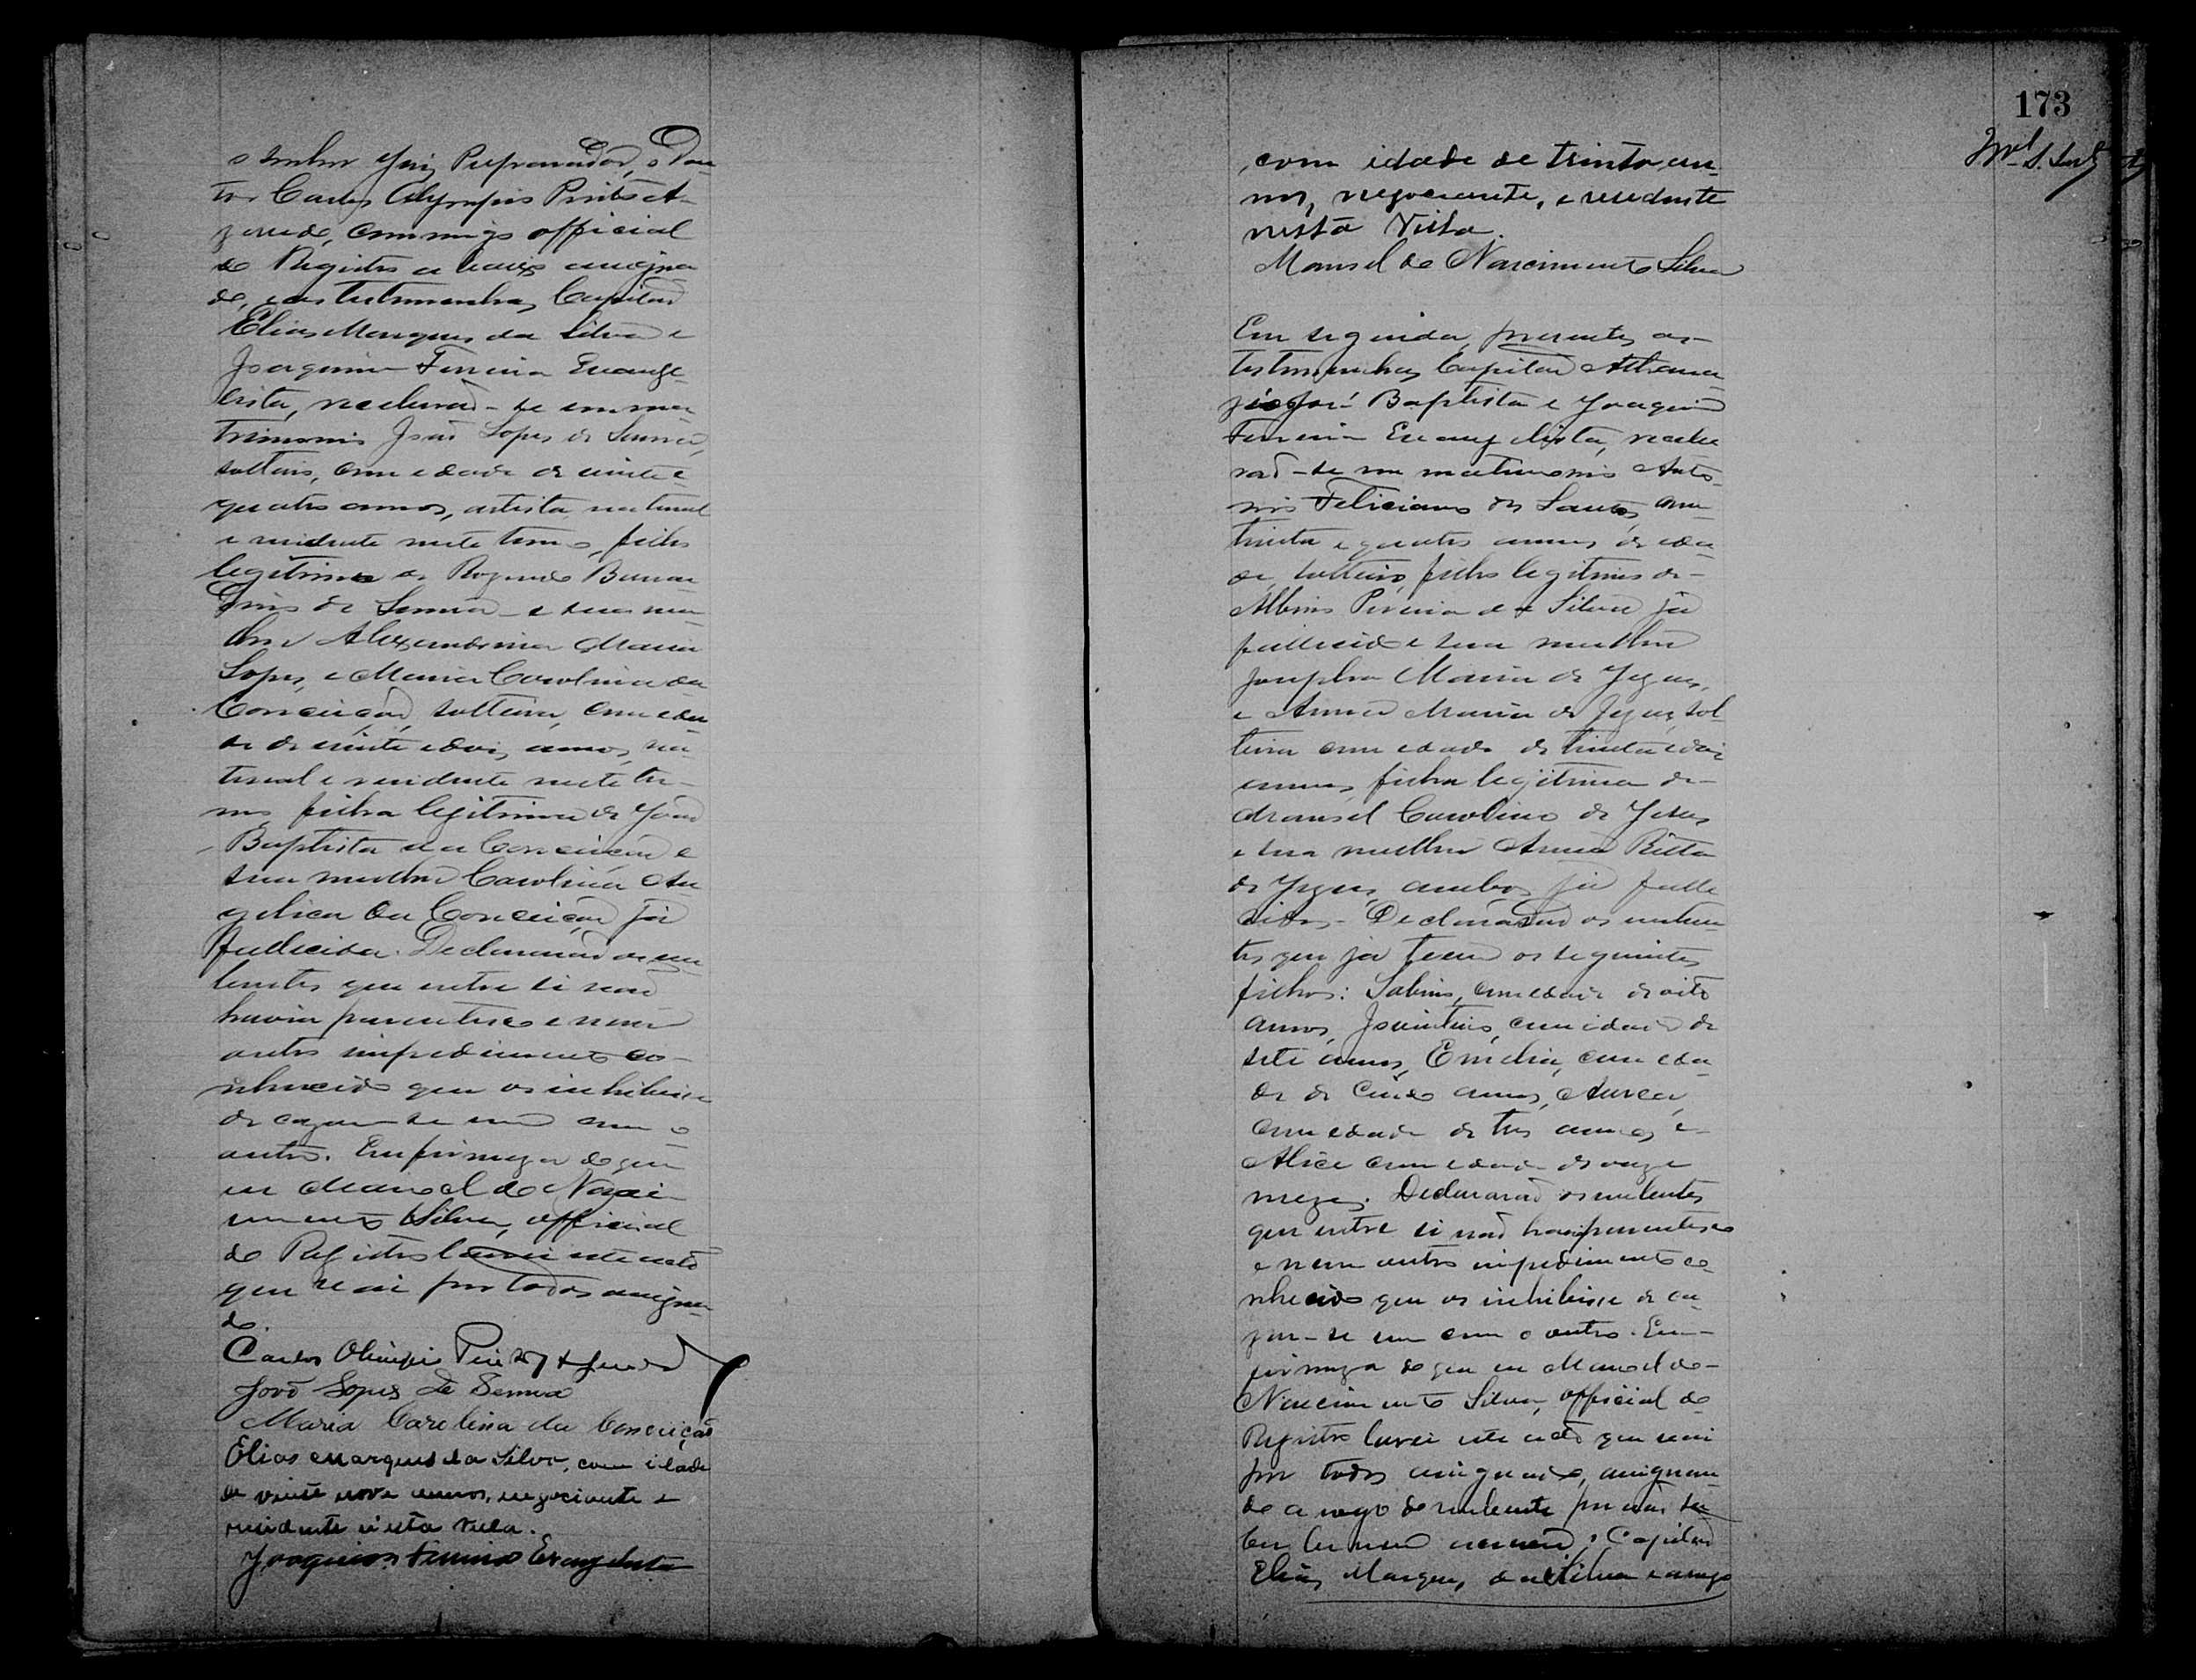 o senhor Juiz Preparador, o Dou-
tor Carlos Olympio Pinto de A-
zevedo, commigo official
do Registro a baixo assigna-
do, e as testemunhas Capitão
Elias Marques da Silva e
Joaquim Ferreira Evange-
lista, receberão-se em ma-
trimonio João Lopes de Senna,
solteiro, com edade de vinte e
quatro annos, artista, natural
e residente neste termo, filho
legitimo de Rozendo Bernar-
dino de Senna e sua mu-
lher Alexandrina Maria
Lopes, e Maria Carolina da
Conceição, solteira, com eda-
de de vinte e dois annos, na-
tural e residente neste ter-
mo, filha legitima de João
Baptista da Conceição e
sua mulher Carolina An-
gelica da Conceição já
fallecida. Declararão os nu-
bentes que entre si não
havia parentesco e nem
outro impedimento co-
nhecido que os inhibisse
de cazar-se um com o
outro. Em firmeza do que
eu Manoel do Nasci-
mento Silva, official
do Registro lavrei este acto
que vai por todos assigna-
do.
Carlos Olimpio Pinto d'Azevedo
João Lopes de Senna
Maria Carolina da Conceição
Elias Marques da Silva, com idade
de vinte nove annos, negociante e
residente n'esta Villa.
Joaquim Ferreira Evangelista
173
com idade de trinta an-
nos, negociante, e residente
nesta Villa.
Manoel do Nascimento Silva
Em seguida, presentes as
testemunhas Capitão Athana-
zio José Baptista e Joaquim
Ferreira Evangelista, recebe-
rão-se em matrimonio Anto-
nio Feliciano dos Santos, com
trinta e quatro annos de eda-
de, solteiro, filho legitimo de
Albino Pereira da Silva já
fallecido e sua mulher
Josepha Maria de Jezus,
e Anna Maria de Jezus, sol-
teira com edade de trinta e dois
annos, filha legitima de
Manoel Carolino de Jesus
e sua mulher Anna Ritta
de Jezus, ambos já falle-
cidos. Declararão os nuben-
tes que já teem os seguintes
filhos: Sabino, com edade de oito
annos, Jacintho, com idade de
sete annos, Emilia, com eda-
de de cinco annos, Aurea,
com edade de tres annos e
Alice com edade de onze
mezes. Declararão os nubentes
que entre si não havia parentesco
e nem outro impedimento co-
nhecido que os inhibisse de ca-
zar-se um com o outro. Em
firmeza do que eu Manoel do
Nascimento Silva, official do
Registro lavrei este acto que vai
por todos assignado, assignan-
do a rogo do nubente por não sa-
ber ler nem escrever, o Capitão
Elias Marques da Silva e a rogo